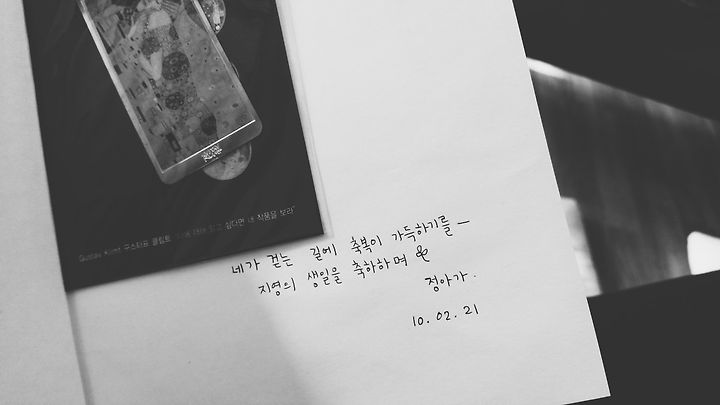 Gustav Klimt 구스타프 클림트 알고 싶다면 내 작품을 보라"
네가 걷는 길에 축복이 가득하기를 —
지영의 생일을 축하하며 &
정아가.
10. 02. 21